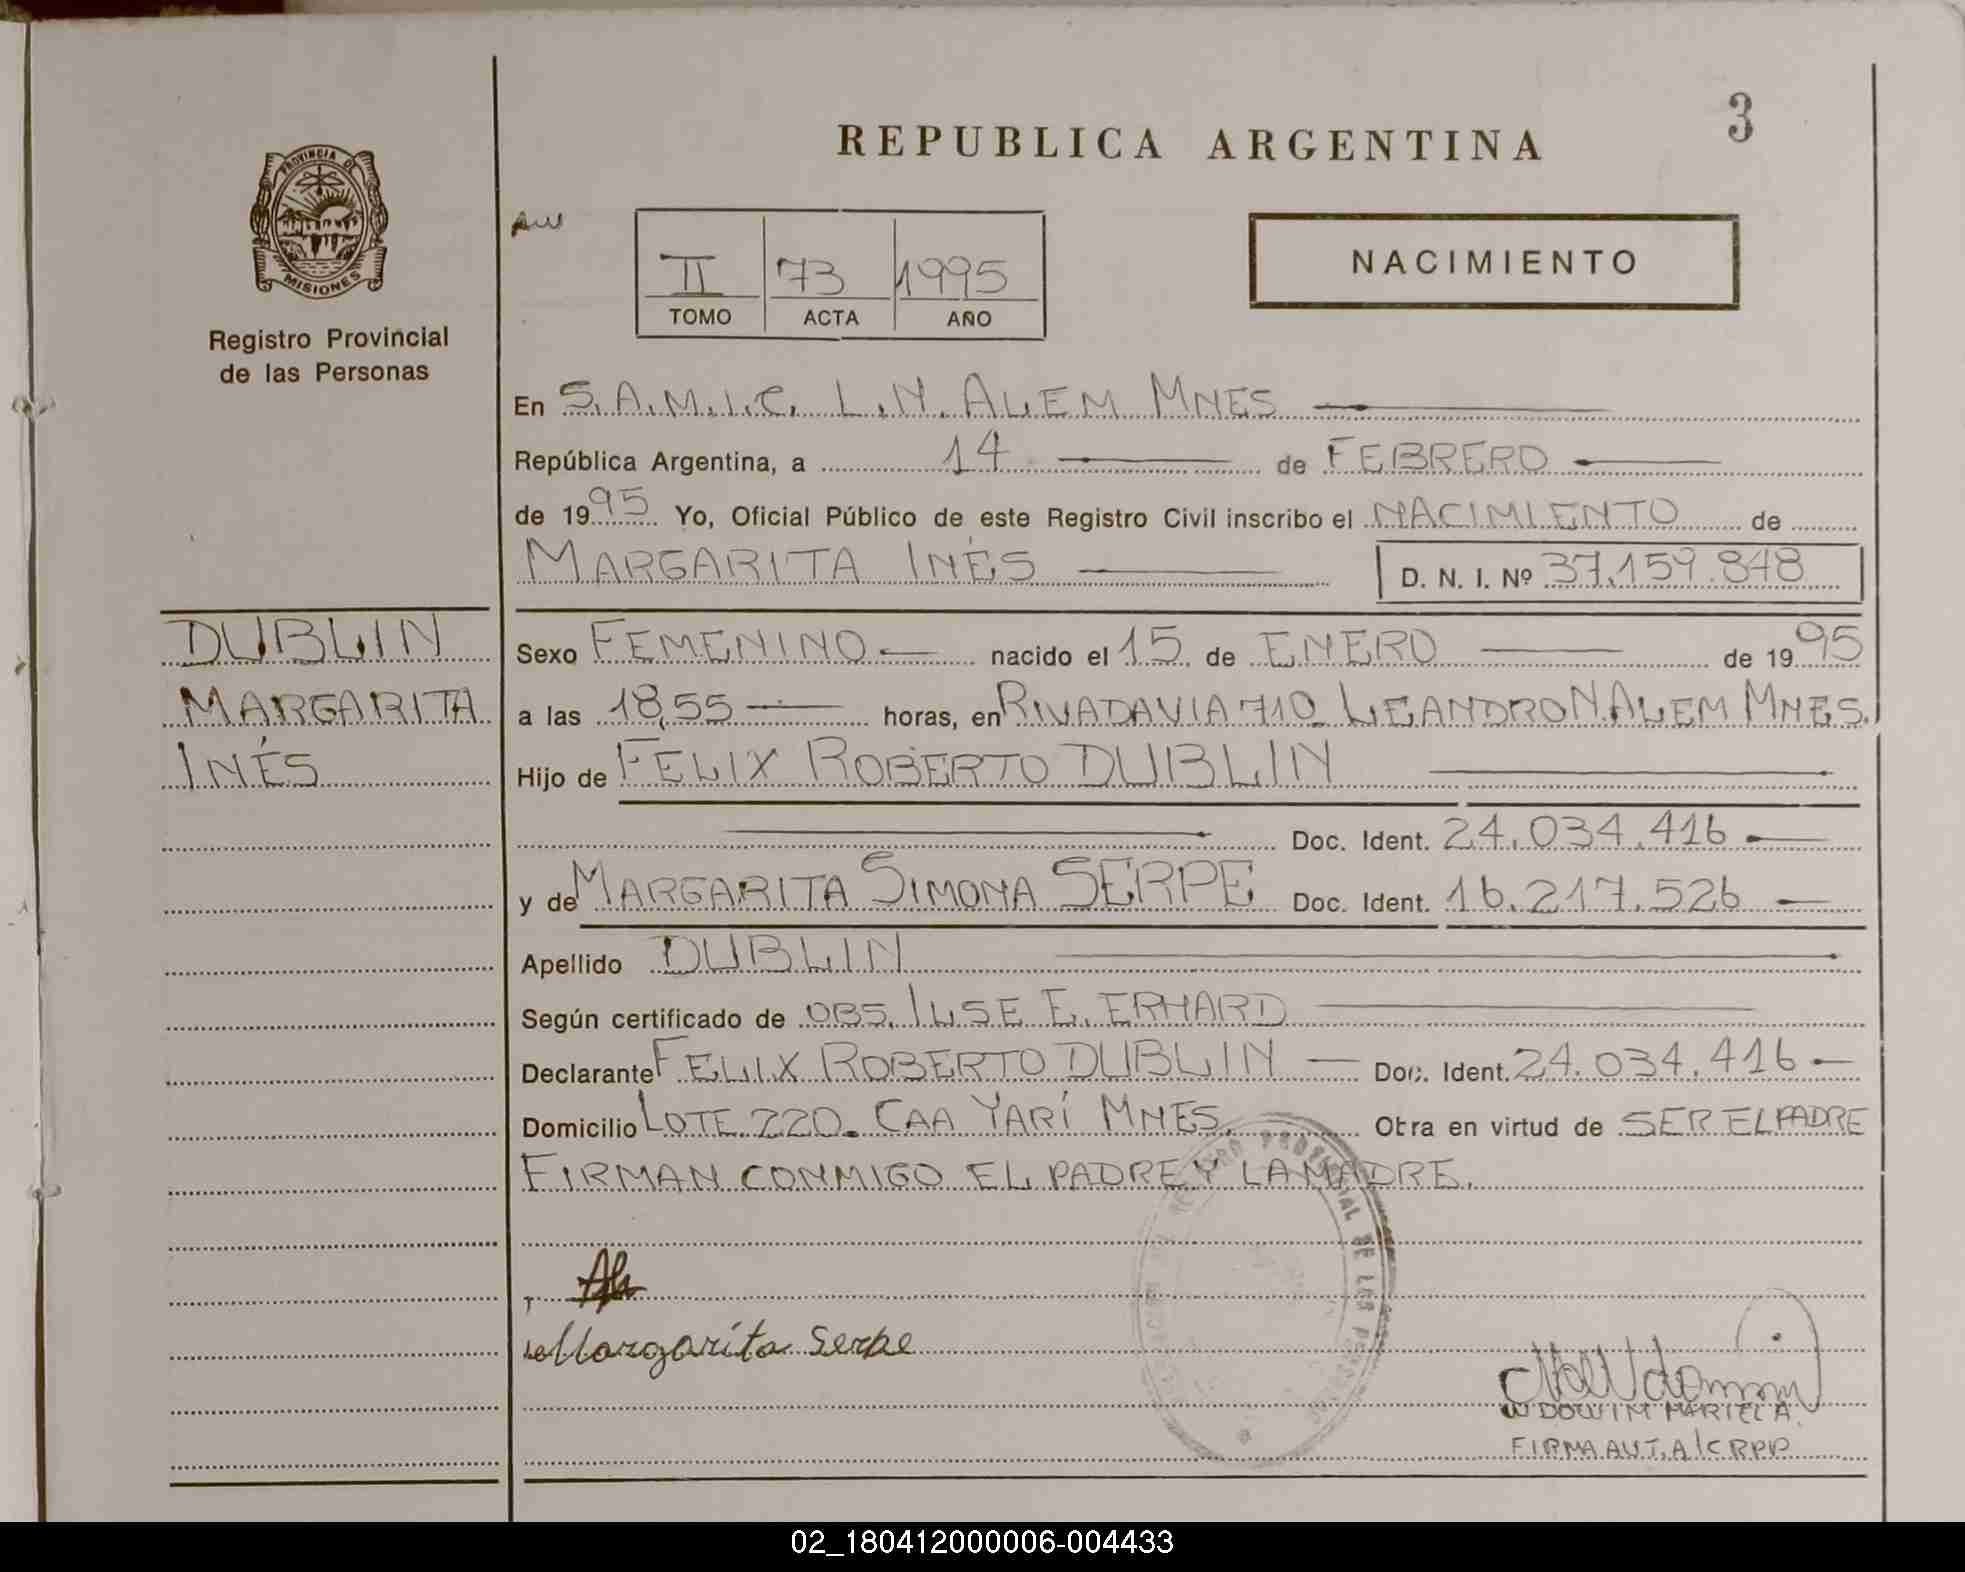 REPUBLICA ARGENTINA
3
PROVINCIA DE
MISIONES
Registro Provincial
de las Personas
II 73 1995
TOMO ACTA AÑO
NACIMIENTO
En S.A.M.I.C. L.N. ALEM MNES
República Argentina, a 14 de FEBRERO
de 1995 Yo, Oficial Público de este Registro Civil inscribo el NACIMIENTO de
MARGARITA INÉS D. N. I. Nº 37.159.848
DUBLIN
MARGARITA
INÉS
Sexo FEMENINO nacido el 15 de ENERO de 1995
a las 18,55 horas, en RIVADAVIA 710 LEANDRO N. ALEM MNES.
Hijo de FELIX ROBERTO DUBLIN
Doc. Ident. 24.034.416
y de MARGARITA SIMONA SERPE Doc. Ident. 16.217.526
Apellido DUBLIN
Según certificado de OBS. ILSE E. ERHARD
Declarante FELIX ROBERTO DUBLIN Doc. Ident. 24.034.416
Domicilio LOTE 220. CAA YARÍ MNES. Obra en virtud de SER EL PADRE
FIRMAN CONMIGO EL PADRE Y LA MADRE.
Margarita Serpe
REGISTRO PROVINCIAL DE LAS PERSONAS
WDOWIM MARIEL A.
FIRMA AUT. A/C RPP
02_180412000006-004433